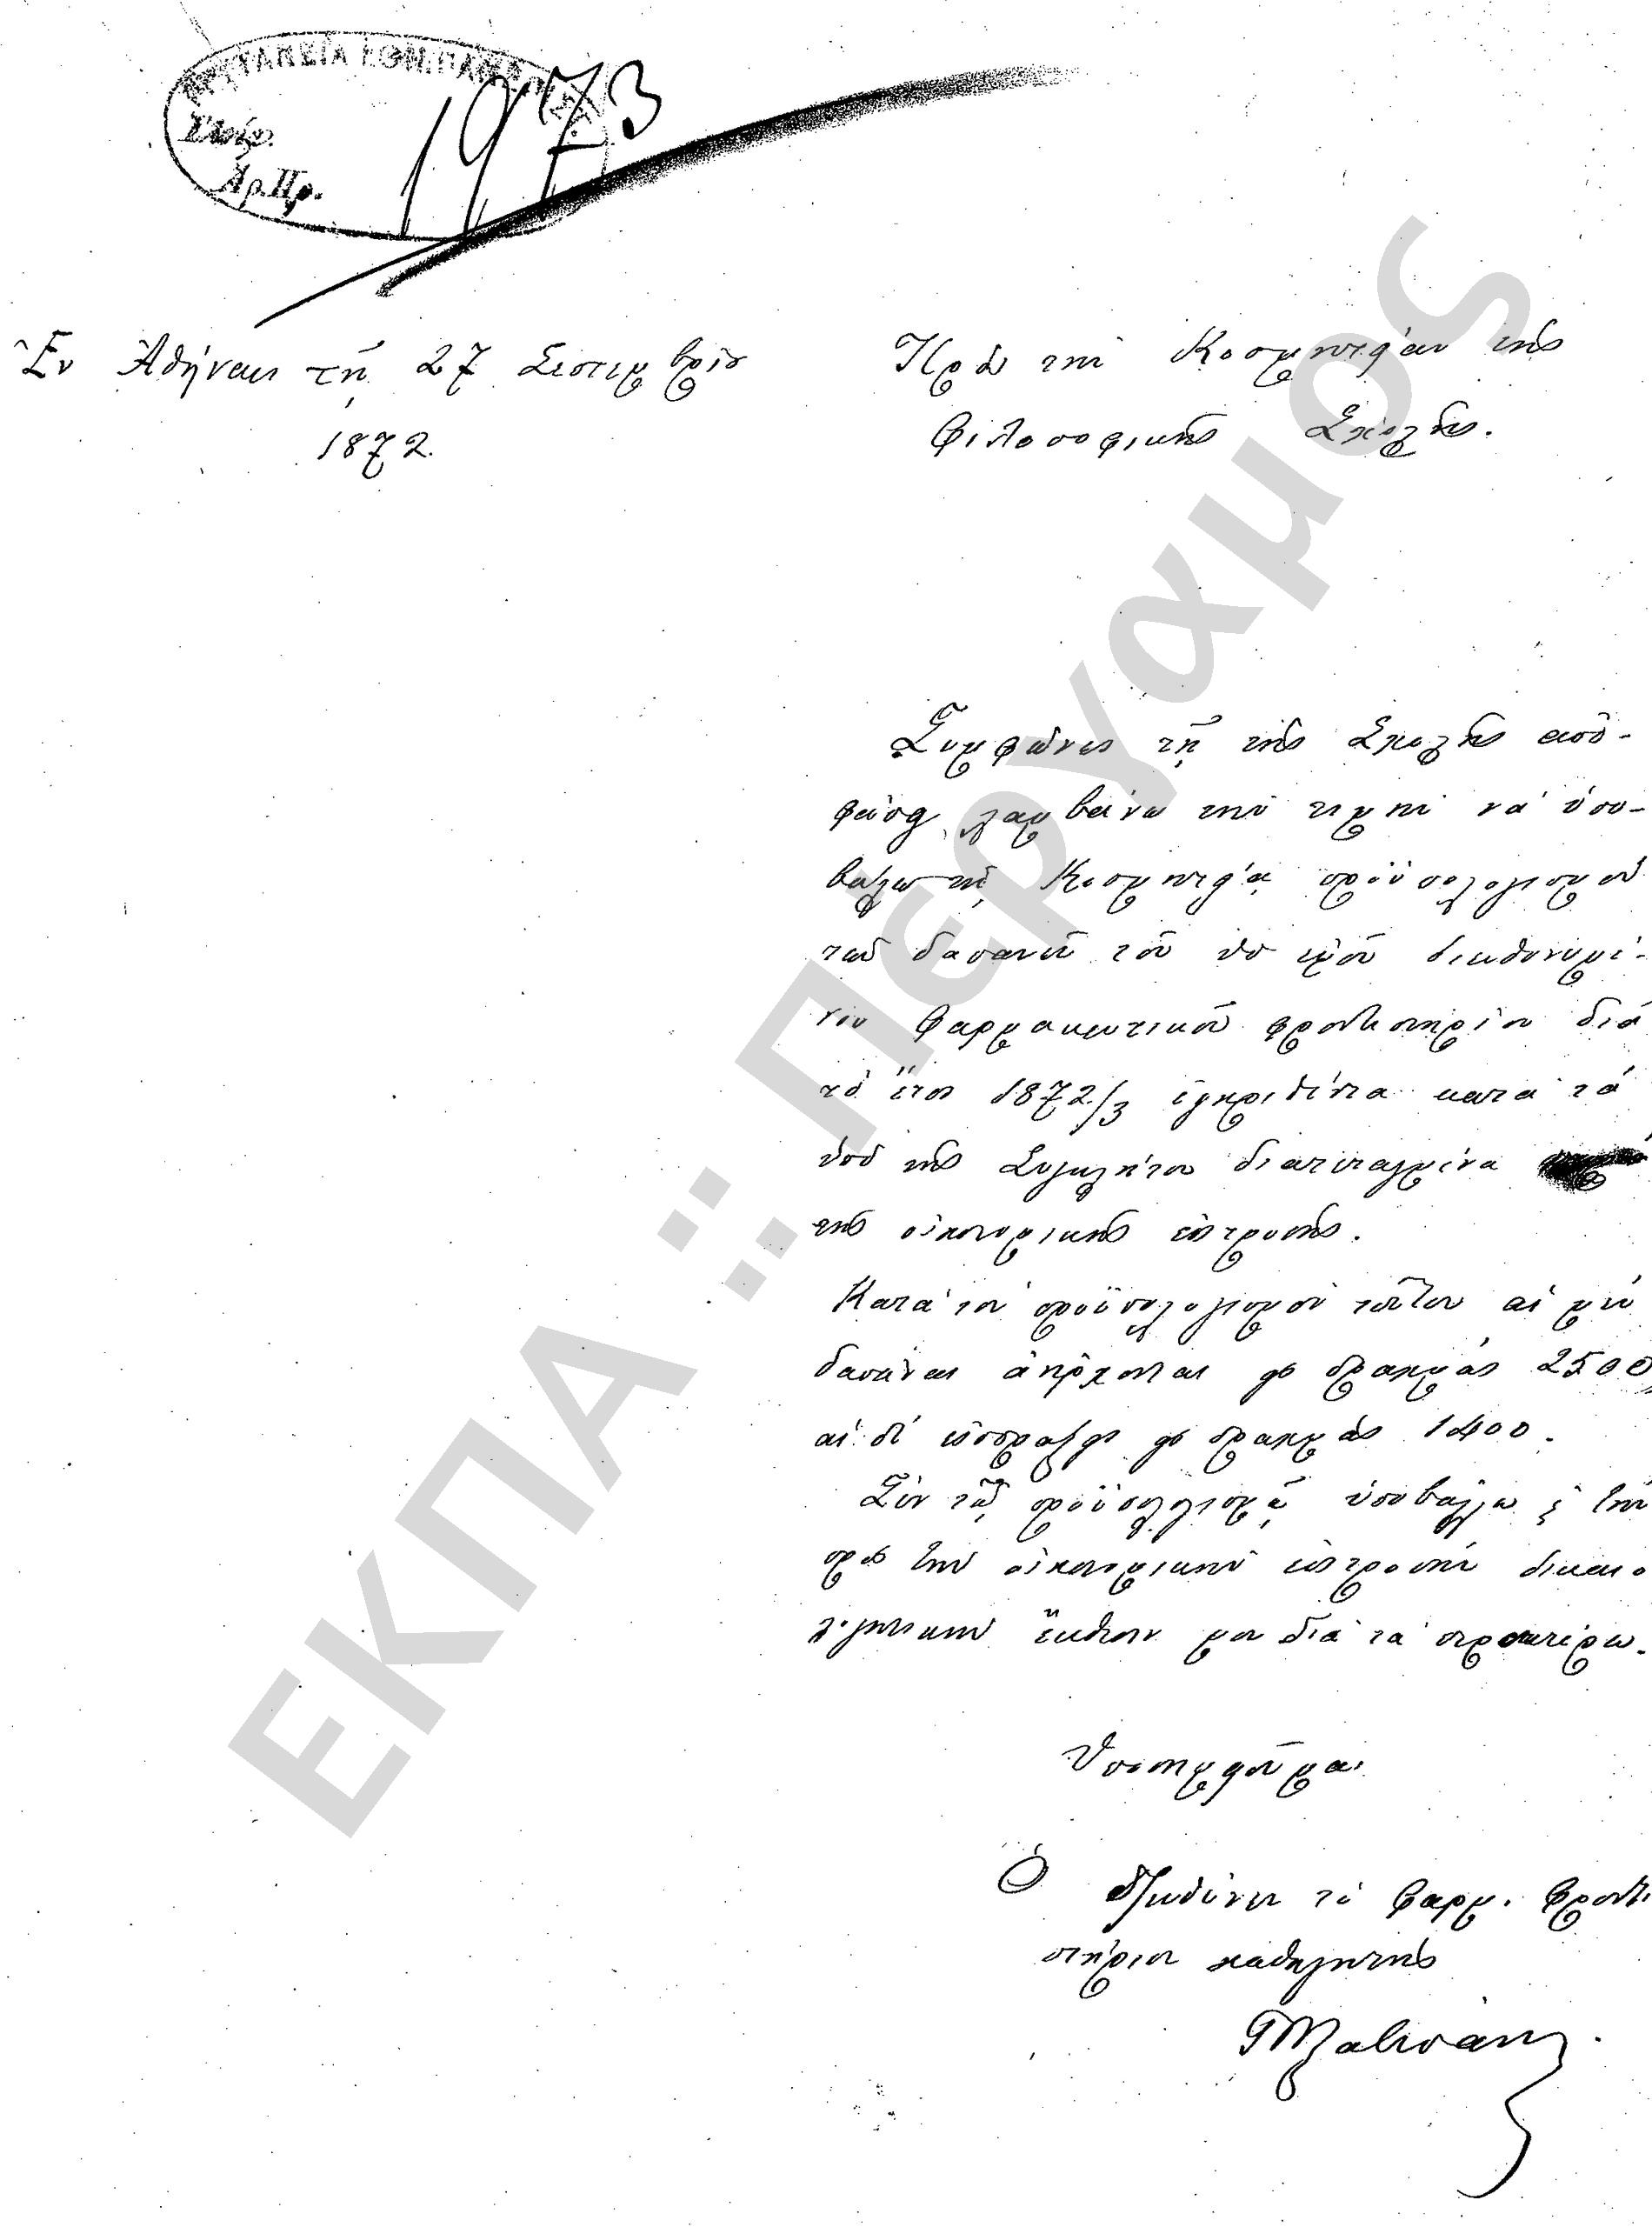 ΠΡΥΤΑΝΕΙΑ ΕΘΝ. ΠΑΝΕΠΙΣΤ.
Εἰσέρ.
Ἀρ. Πρ.
1973
Ἐν Ἀθήναις τῇ 27 Σεπτεμβρίου
1872.
Πρὸς τὴν Κοσμητείαν τῆς
Φιλοσοφικῆς Σχολῆς.
Συμφώνως τῇ τῆς Σχολῆς ἀπο-
φάσει λαμβάνω τὴν τιμὴν νὰ ὑπο-
βάλω τῇ Κοσμητείᾳ προϋπολογισμὸν
τῶν δαπανῶν τοῦ ὑπ' ἐμοῦ διευθυνομέ-
νου Φαρμακευτικοῦ φροντιστηρίου διὰ
τὸ ἔτος 1872/3 ἐγκριθέντα κατὰ τὰ
ὑπὸ τῆς Συγκλήτου διατεταγμένα
τῆς οἰκονομικῆς ἐπιτροπῆς.
Κατὰ τὸν προϋπολογισμὸν τοῦτον αἱ μὲν
δαπάναι ἀνέρχονται εἰς δραχμὰς 2500
αἱ δὲ εἰσπράξεις εἰς δραχμὰς 1400.
Σὺν τῷ προϋπολογισμῷ ὑποβάλλω καὶ τὴν
πρὸς τὴν οἰκονομικὴν ἐπιτροπὴν δικαιο
λογητικὴν ἔκθεσίν μου διὰ τὰ περαιτέρω.
Ὑποσημειοῦμαι
Ὁ διευθύνων τὸ Φαρμ. Φροντι
στήριον καθηγητὴς
ΕΚΠΑ :: Πέργαμος